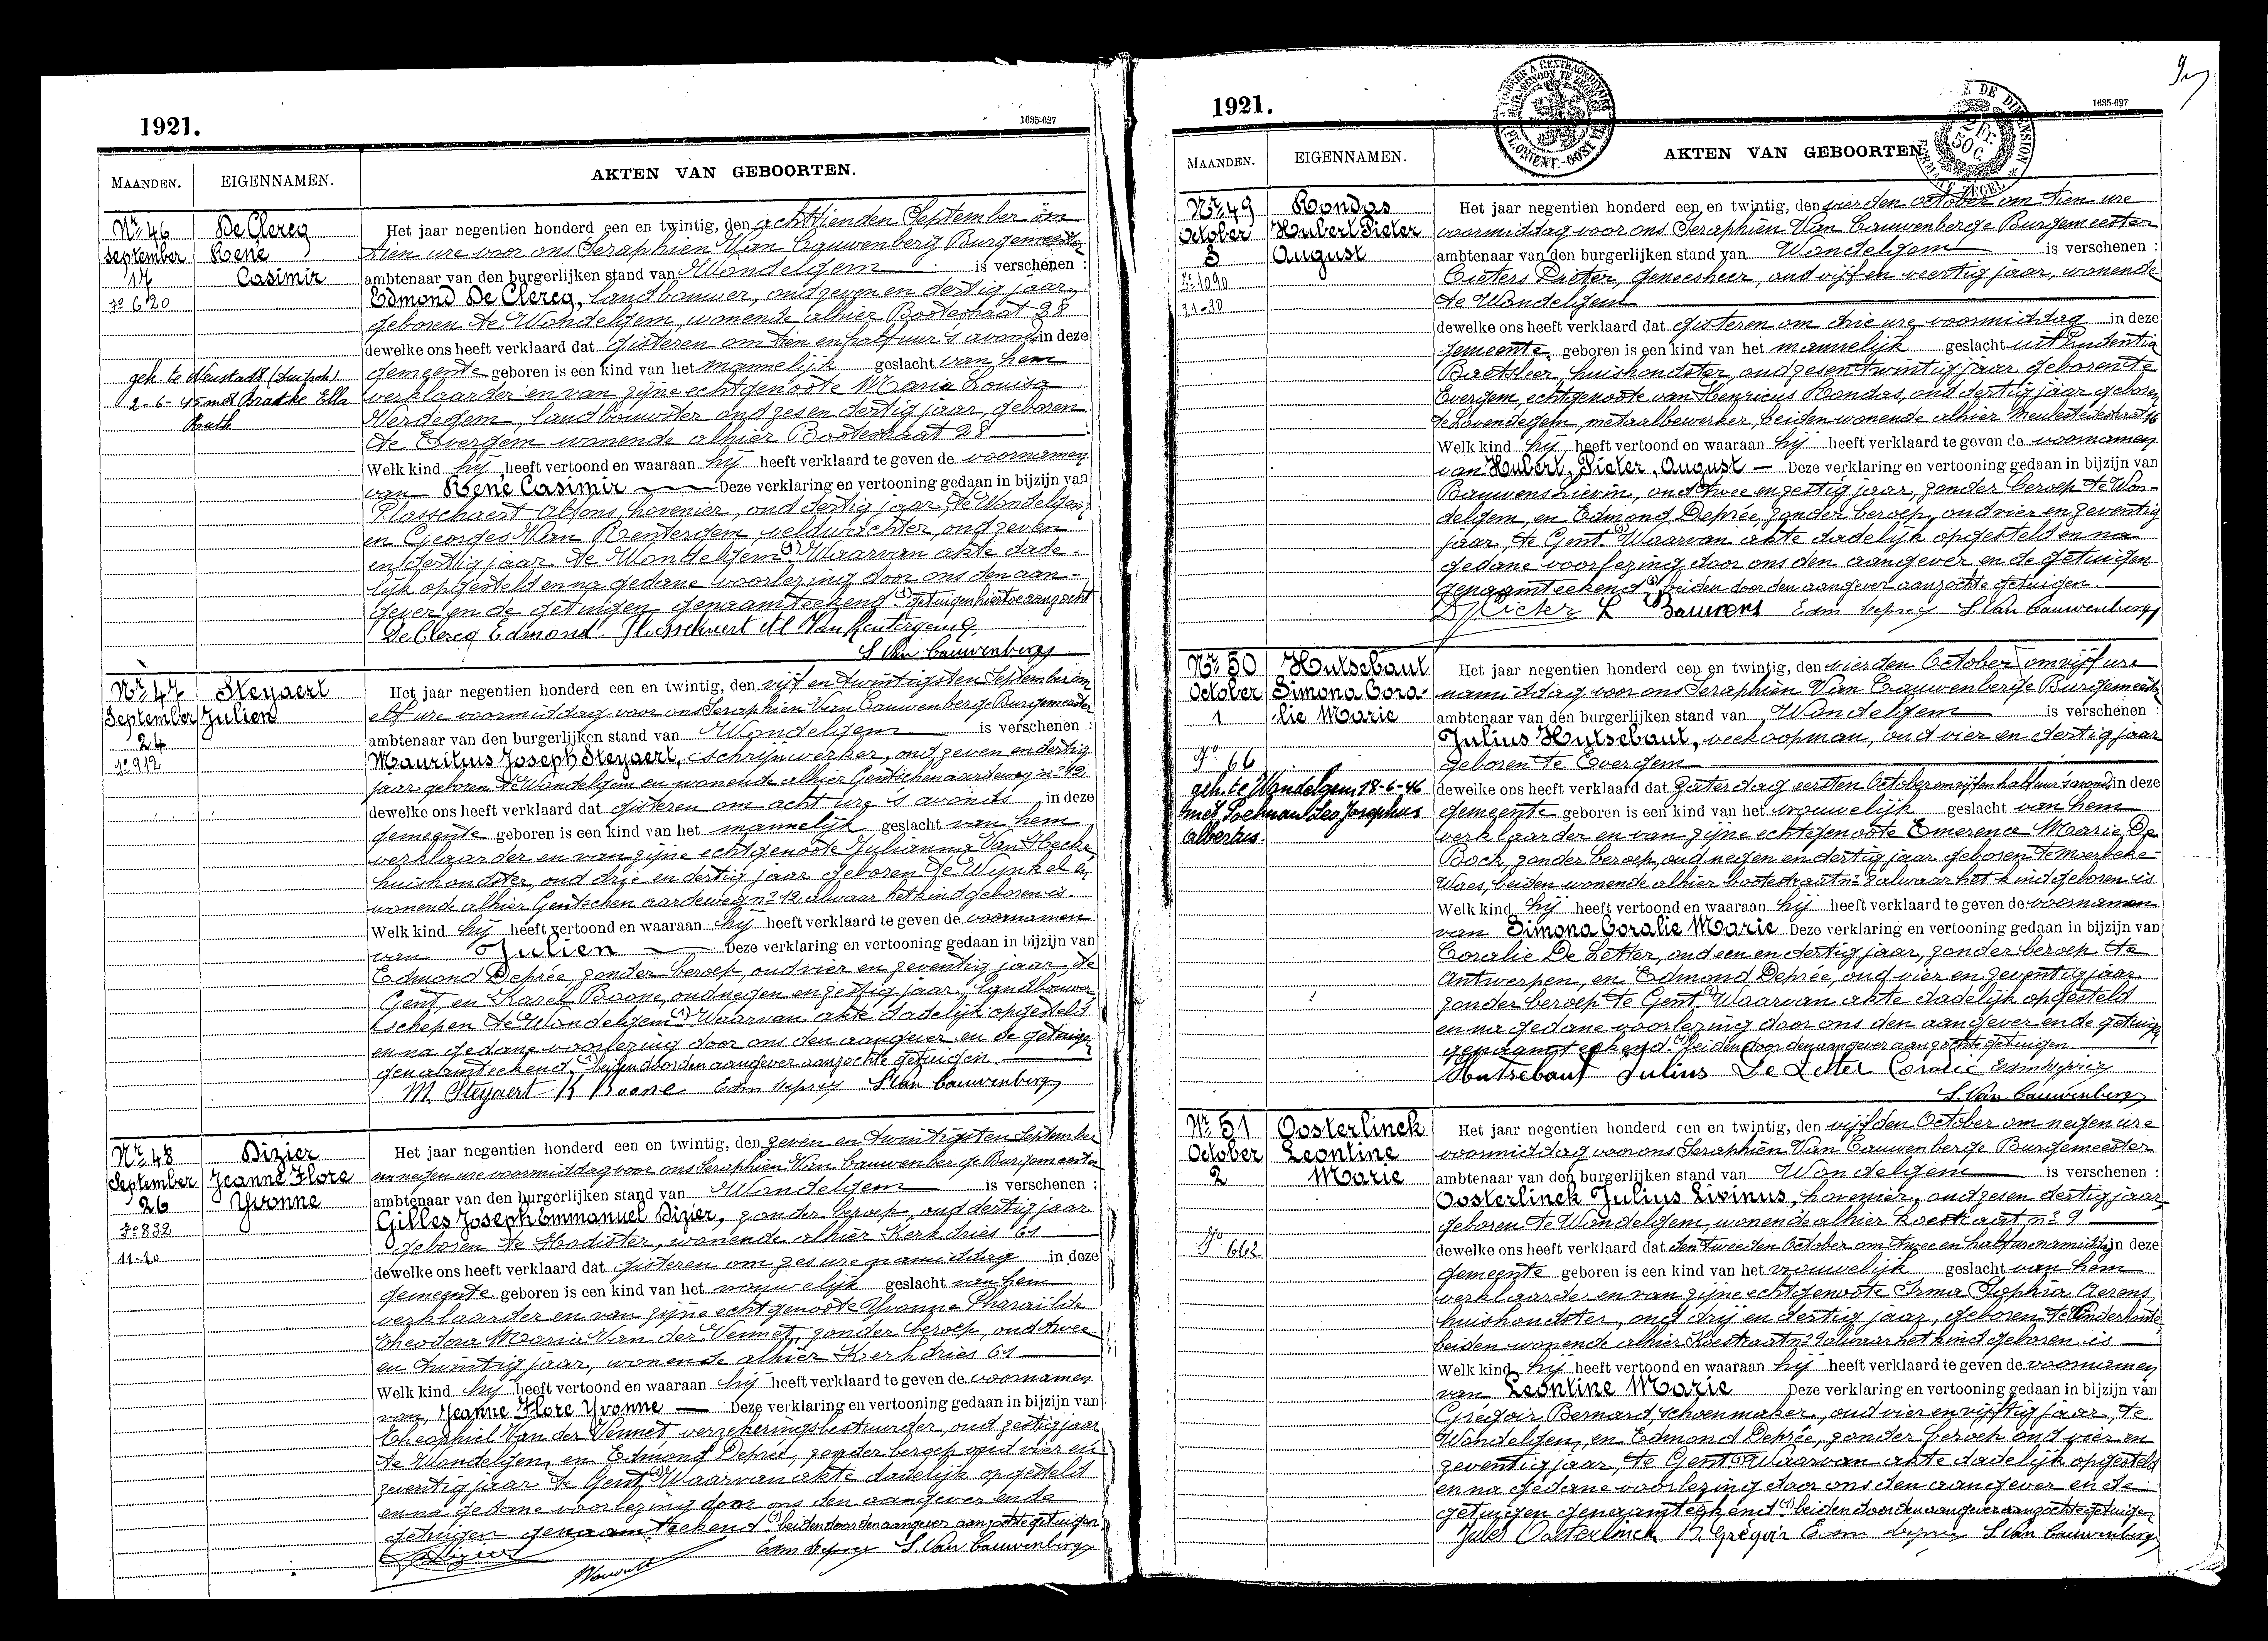 1921.
1635-627
MAANDEN.
EIGENNAMEN.
AKTEN VAN GEBOORTEN.
Nr. 46
September
17
No 620
De Clercq
René
Casimir
geh. te Neustadt (Duitsch.)
2-6-45 met Bratke Ella
Ruth
Het jaar negentien honderd een en twintig, den achttienden September om
tien ure voor ons Seraphien Van Cauwenberg Burgemeester
ambtenaar van den burgerlijken stand van Wondelgem is verschenen :
Edmond De Clercq, landbouwer, oud zeven en dertig jaar,
geboren te Wondelgem, wonende alhier Botestraat 28
dewelke ons heeft verklaard dat gisteren om tien en half uur 's avonds in deze
gemeente geboren is een kind van het mannelijk geslacht van hem
verklaarder en van zijne echtgenoote Maria Louisa
Verdegem, landbouwster oud zes en dertig jaar, geboren
te Evergem wonende alhier Botestraat 28
Welk kind hij heeft vertoond en waaraan hij heeft verklaard te geven de voornamen
van René Casimir Deze verklaring en vertooning gedaan in bijzijn van
Plasschaert Alfons, hovenier, oud dertig jaar, te Wondelgem,
en Georges Van Renterghem, veldwachter, oud zeven
en dertig jaar te Wondelgem (1) Waarvan akte dade-
lijk opgesteld en na gedane voorlezing door ons den aan-
gever en de getuigen genaamteekend. (1) getuigen hiertoe aangezocht
De Clercq Edmond Plasschaert Al Van Rentergem G.
S. Van Cauwenberg
Nr. 47
September
24
No 912
Steyaert
Julien
Het jaar negentien honderd een en twintig, den vijf en twintigsten September om
elf ure voormiddag voor ons Seraphien Van Cauwenberge Burgemeester
ambtenaar van den burgerlijken stand van Wondelgem is verschenen :
Mauritius Joseph Steyaert, schrijnwerker, oud zeven en dertig
jaar geboren te Wondelgem en wonende alhier Gentschen aardeweg no 12
dewelke ons heeft verklaard dat gisteren om acht ure 's avonds in deze
gemeente geboren is een kind van het mannelijk geslacht van hem
verklaarder en van zijne echtgenoote Julianna Van Hecke
huishoudster, oud drie en dertig jaar geboren te Wynkel en
wonende alhier Gentschen aardeweg no 12 alwaar het kind geboren is.
Welk kind hij heeft vertoond en waaraan hij heeft verklaard te geven de voornamen
van Julien Deze verklaring en vertooning gedaan in bijzijn van
Edmond Deprée, zonder beroep, oud vier en zeventig jaar, te
Gent, en Karel Boone, oud negen en zestig jaar, landbouwer
schepen te Wondelgem (1) Waarvan akte dadelijk opgesteld
en na gedane voorlezing door ons den aangever en de getuigen
genaamteekend. (1) beiden door den aangever aanzochte getuigen.
M. Steyaert K Boone Edm Deprey S. Van Cauwenberg
Nr. 48
September
26
No 832
11-20
Dizier
Jeanne Flore
Yvonne
Het jaar negentien honderd een en twintig, den zeven en twintigsten September
om negen ure voormiddag voor ons Seraphien Van Cauwenberge Burgemeester
ambtenaar van den burgerlijken stand van Wondelgem is verschenen :
Gilles Joseph Emmanuel Dizier, zonder beroep, oud dertig jaar
geboren te Hodister, wonende alhier Kerkdries 61
dewelke ons heeft verklaard dat gisteren om zes ure namiddag in deze
gemeente geboren is een kind van het vrouwelijk geslacht van hem
verklaarder en van zijne echtgenoote Yvonne Pharaïlde
Theodora Maria Van der Vennet, zonder beroep, oud twee
en twintig jaar, wonende alhier Kerkdries 61
Welk kind hij heeft vertoond en waaraan hij heeft verklaard te geven de voornamen
van Jeanne Flore Yvonne Deze verklaring en vertooning gedaan in bijzijn van
Theophiel Van der Vennet, verzekeringsbestuurder, oud zestig jaar
te Wondelgem, en Edmond Deprée, zonder beroep oud vier en
zeventig jaar te Gent (1) Waarvan akte dadelijk opgesteld
en na gedane voorlezing door ons den aangever en de
getuigen genaamteekend. (1) beiden door den aangever aanzochte getuigen
Edm Deprey S. Van Cauwenberg
1921.
1635-627
MAANDEN.
EIGENNAMEN.
AKTEN VAN GEBOORTEN.
Nr. 49
October
3
No 1090
21-30
Rondas
Hubert Pieter
August
Het jaar negentien honderd een en twintig, den vierden October om tien ure
voormiddag voor ons Seraphien Van Cauwenberge Burgemeester
ambtenaar van den burgerlijken stand van Wondelgem is verschenen :
Pieters Pieter, geneesheer, oud vijf en veertig jaar, wonende
te Wondelgem
dewelke ons heeft verklaard dat gisteren om drie ure voormiddag in deze
gemeente geboren is een kind van het mannelijk geslacht uit Prudentia
Baetsleer, huishoudster, oud zes en twintig jaar geboren te
Evergem, echtgenoote van Henricus Rondas, oud dertig jaar geboren
te Lovendegem, metaalbewerker, beiden wonende alhier Meulestedestraat 16
Welk kind hij heeft vertoond en waaraan hij heeft verklaard te geven de voornamen
van Hubert, Pieter, August Deze verklaring en vertooning gedaan in bijzijn van
Bauwens Lievin, oud twee en zestig jaar, zonder beroep te Won-
delgem, en Edmond Deprée, zonder beroep, oud vier en zeventig
jaar, te Gent. (1) Waarvan akte dadelijk opgesteld en na
gedane voorlezing door ons den aangever en de getuigen
genaamteekend (1) beiden door den aangever aanzochte getuigen.
D. Pieter L Bauwens Edm Deprey S. Van Cauwenberg
Nr. 50
October
1
No 66
Hutsebaut
Simona Cora-
lie Marie
geh. te Wondelgem 18-6-46
met Poelman Leo Josephus
Albertus.
Het jaar negentien honderd een en twintig, den vierden October om vijf ure
namiddag voor ons Seraphien Van Cauwenberge Burgemeester
ambtenaar van den burgerlijken stand van Wondelgem is verschenen :
Julius Hutsebaut, veekoopman, oud vier en dertig jaar
geboren te Evergem
dewelke ons heeft verklaard dat zaterdag eersten October om vijf en half uur 's avonds in deze
gemeente geboren is een kind van het vrouwelijk geslacht van hem
verklaarder en van zijne echtgenoote Emerence Marie De
Bock, zonder beroep, oud negen en dertig jaar geboren te Moerbeke-
Waes, beiden wonende alhier botestraat no 8 alwaar het kind geboren is
Welk kind hij heeft vertoond en waaraan hij heeft verklaard te geven de voornamen
van Simona Coralie Marie Deze verklaring en vertooning gedaan in bijzijn van
Coralie De Letter, oud een en dertig jaar, zonder beroep te
Antwerpen, en Edmond Deprée, oud vier en zeventig jaar
zonder beroep te Gent (1) Waarvan akte dadelijk opgesteld
en na gedane voorlezing door ons den aangever en de getuigen
genaamteekend. (1) beiden door den aangever aanzochte getuigen.
Hutsebaut Julius De Letter Coralie Edm Deprey
S. Van Cauwenberg
Nr. 51
October
2
No 662
Oosterlinck
Leontine
Marie
Het jaar negentien honderd een en twintig, den vijfden October om negen ure
voormiddag voor ons Seraphien Van Cauwenberge Burgemeester
ambtenaar van den burgerlijken stand van Wondelgem is verschenen :
Oosterlinck Julius Livinus, hovenier, oud zes en dertig jaar
geboren te Wondelgem, wonende alhier Koestraat no 9
dewelke ons heeft verklaard dat den tweeden October om twee en half ure namiddag in deze
gemeente geboren is een kind van het vrouwelijk geslacht van hem
verklaarder en van zijne echtgenoote Irma Sophia Aerens,
huishoudster, oud drij en dertig jaar, geboren te Vinderhoute
beiden wonende alhier Koestraat no 9 alwaar het kind geboren is
Welk kind hij heeft vertoond en waaraan hij heeft verklaard te geven de voornamen
van Leontine Marie Deze verklaring en vertooning gedaan in bijzijn van
Grégoir Bernard, schoenmaker, oud vier en vijftig jaar, te
Wondelgem, en Edmond Deprée, zonder beroep oud vier en
zeventig jaar, te Gent (1) Waarvan akte dadelijk opgesteld
en na gedane voorlezing door ons den aangever en de
getuigen genaamteekend (1) beiden door den aangever aanzochte getuigen
Jules Oosterlinck B. Grégoir Edm Deprey S. Van Cauwenberg